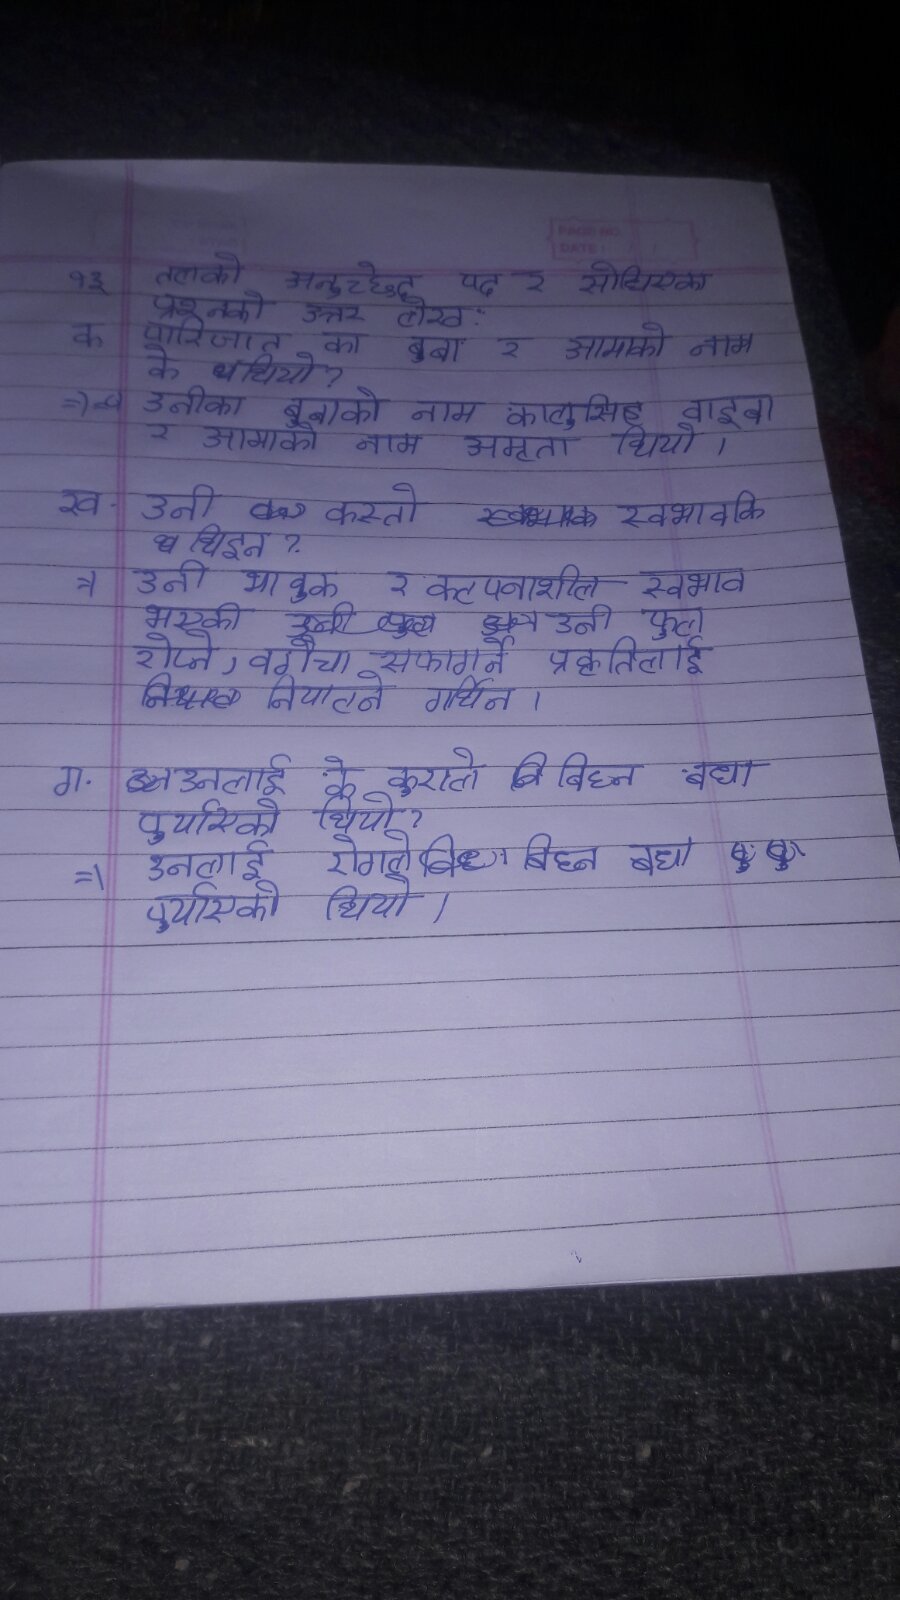 PAGE NO.
DATE:
१३ तलको अनुच्छेद पढ र सोधिएका
प्रश्नको उत्तर लेख:
क पारिजात का बुबा र आमाको नाम
के थियो?
=> उनीका बुबाको नाम कालुसिंह वाइबा
र आमाको नाम अमृता थियो।
ख. उनी कस्तो स्वभावकि
थिइन?
=> उनी भावुक र कल्पनाशील स्वभाव
भएकी उनी फुल
रोप्ने, वगैचा सफागर्ने प्रकृतिलाई
नियाल्ने गर्थिन।
ग. उनलाई के कुराले बिघ्न बधा
पुर्याएको थियो?
=> उनलाई रोगले बिघ्न बधा
पुर्याएको थियो।